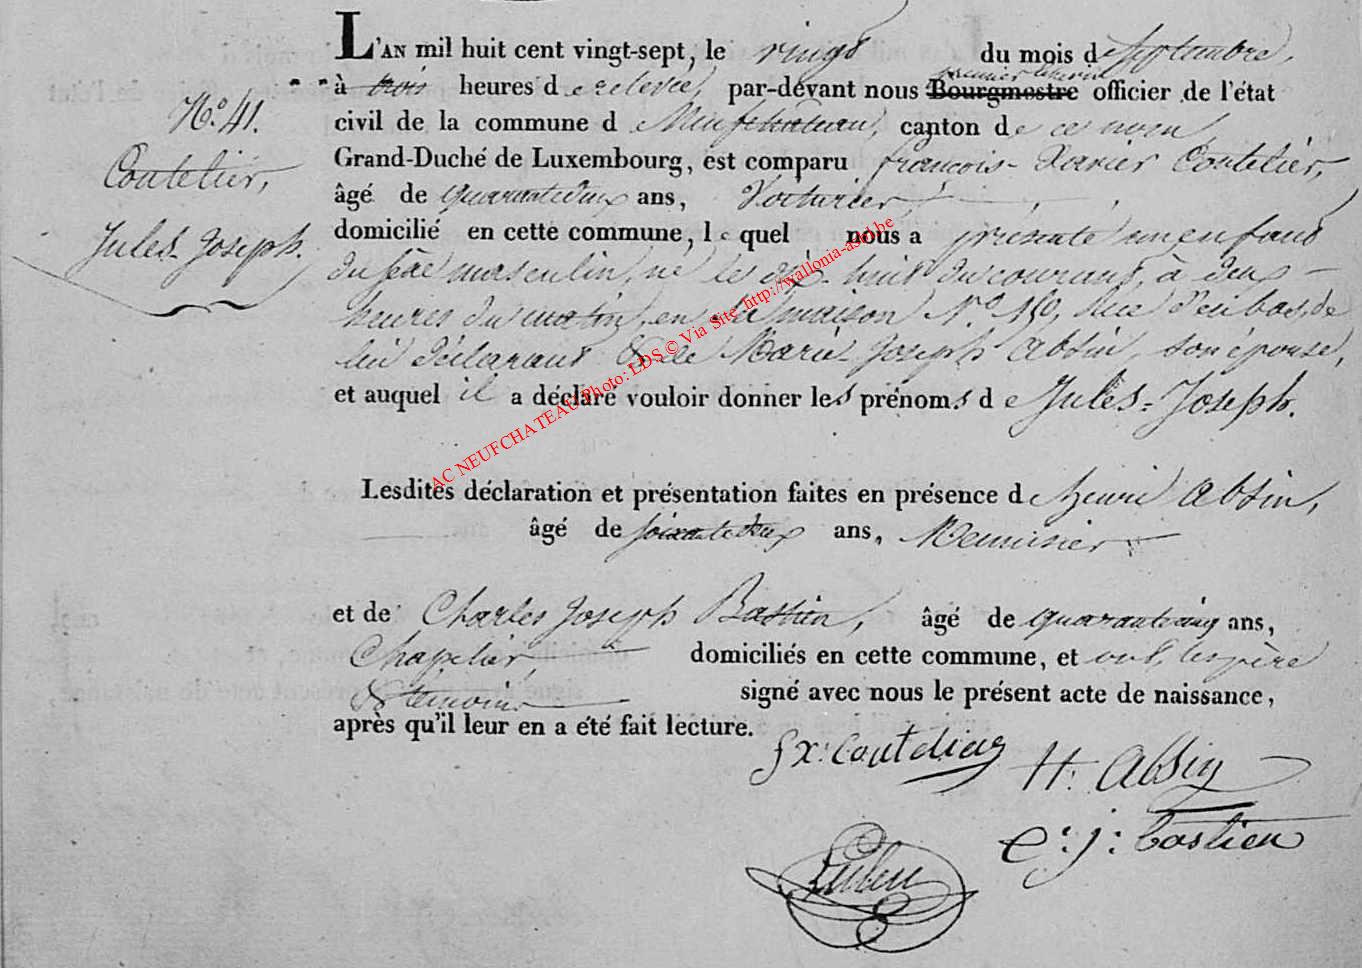 L'AN mil huit cent vingt-sept, le vingt du mois de Septembre,
à trois heures de relevée, par-devant nous Bourgmestre premier Echevin officier de l'état
N.o 41.
civil de la commune de Neufchateau, canton de ce nom,
Coutelier,
Grand-Duché de Luxembourg, est comparu françois-Xavier Coutelier,
âgé de quarantedeux ans, Voiturier
Jules-Joseph.
domicilié en cette commune, le quel nous a présenté un enfant
du sexe masculin, né le dix-huit du courant, à deux
heures du matin, en sa maison N.o 150, rue d'en bas, de
lui déclarant & de Marie Joseph Absin, son épouse,
et auquel il a déclaré vouloir donner les prénoms de Jules-Joseph.
Lesdites déclaration et présentation faites en présence de henri Absin,
âgé de soixantedeux ans, Menuisier
et de Charles Joseph Bastien, âgé de quarantecinq ans,
Chapelier domiciliés en cette commune, et ont, les père
& témoins signé avec nous le présent acte de naissance,
après qu'il leur en a été fait lecture.
fx: Coutelier H: Absin
C: j: bastien
AC NEUFCHATEAU Photo: LDS © Via Site http://wallonia-asbl.be